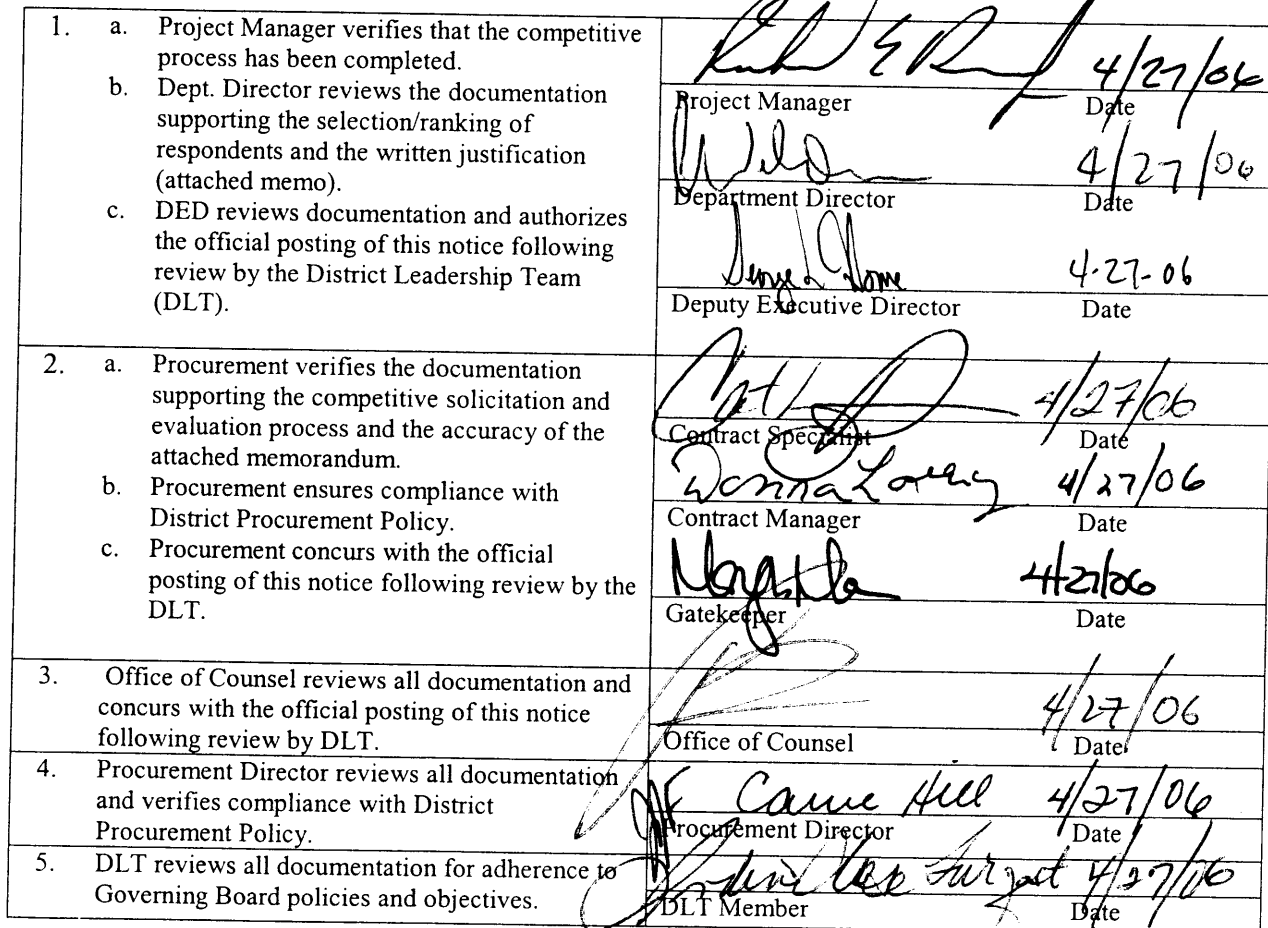 1. a. Project Manager verifies that the competitive
process has been completed.
b. Dept. Director reviews the documentation
supporting the selection/ranking of
respondents and the written justification
(attached memo).
c. DED reviews documentation and authorizes
the official posting of this notice following
review by the District Leadership Team
(DLT).
4/27/06
Project Manager Date
4/27/06
Department Director Date
4-27-06
Deputy Executive Director Date
2. a. Procurement verifies the documentation
supporting the competitive solicitation and
evaluation process and the accuracy of the
attached memorandum.
b. Procurement ensures compliance with
District Procurement Policy.
c. Procurement concurs with the official
posting of this notice following review by the
DLT.
4/27/06
Contract Specialist Date
Donna 4/27/06
Contract Manager Date
4/27/06
Gatekeeper Date
3. Office of Counsel reviews all documentation and
concurs with the official posting of this notice
following review by DLT.
4/27/06
Office of Counsel Date
4. Procurement Director reviews all documentation
and verifies compliance with District
Procurement Policy.
Carrie Hill 4/27/06
Procurement Director Date
5. DLT reviews all documentation for adherence to
Governing Board policies and objectives.
4/27/06
DLT Member Date